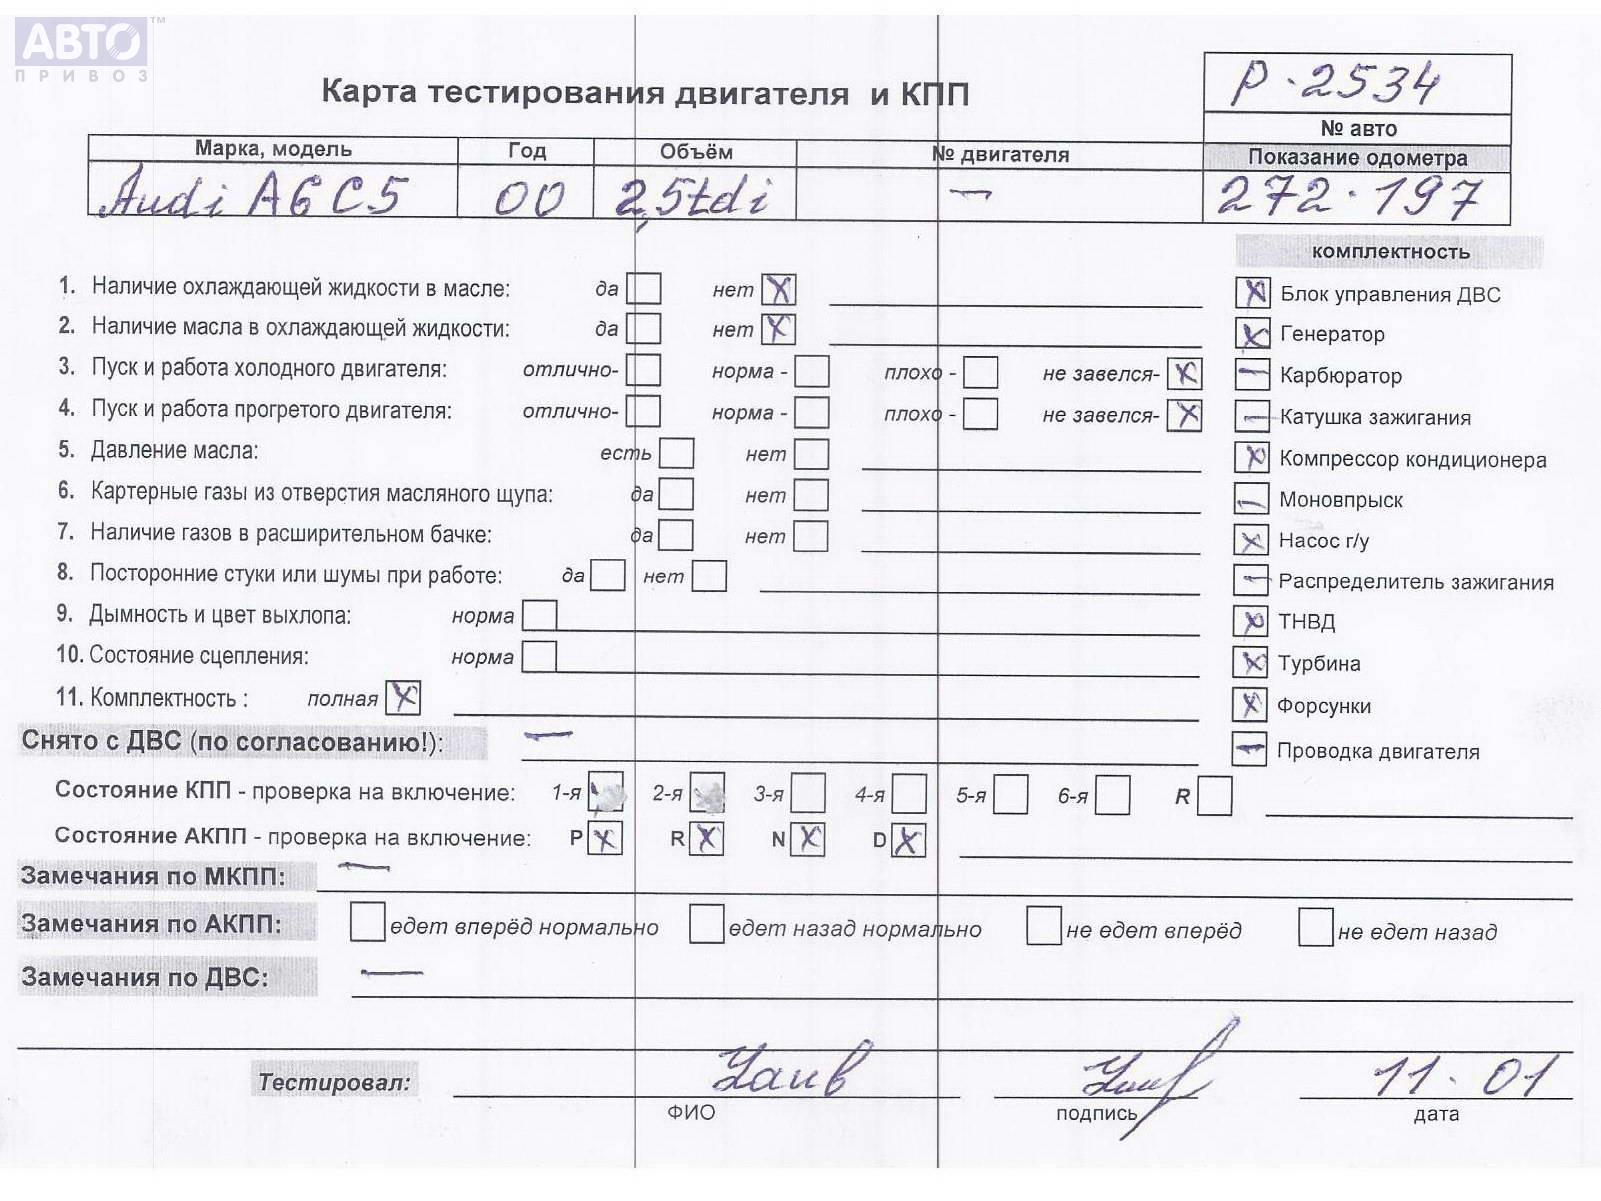 АВТО™
ПРИВОЗ
Карта тестирования двигателя и КПП
P-2534
№ авто
Марка, модель Год Объём № двигателя Показание одометра
Audi A6 C5 00 2,5tdi — 272.197
комплектность
1. Наличие охлаждающей жидкости в масле: да нет X
2. Наличие масла в охлаждающей жидкости: да нет X
3. Пуск и работа холодного двигателя: отлично- норма - плохо - не завелся- X
4. Пуск и работа прогретого двигателя: отлично- норма - плохо - не завелся- X
5. Давление масла: есть нет
6. Картерные газы из отверстия масляного щупа: да нет
7. Наличие газов в расширительном бачке: да нет
8. Посторонние стуки или шумы при работе: да нет
9. Дымность и цвет выхлопа: норма
10. Состояние сцепления: норма
11. Комплектность : полная X
X Блок управления ДВС
X Генератор
— Карбюратор
— Катушка зажигания
X Компрессор кондиционера
— Моновпрыск
X Насос г/у
— Распределитель зажигания
X ТНВД
X Турбина
X Форсунки
— Проводка двигателя
Снято с ДВС (по согласованию!): —
Состояние КПП - проверка на включение: 1-я 2-я 3-я 4-я 5-я 6-я R
Состояние АКПП - проверка на включение: P X R X N X D X
Замечания по МКПП: —
Замечания по АКПП: едет вперёд нормально едет назад нормально не едет вперёд не едет назад
Замечания по ДВС: —
Тестировал: 11.01
ФИО подпись дата